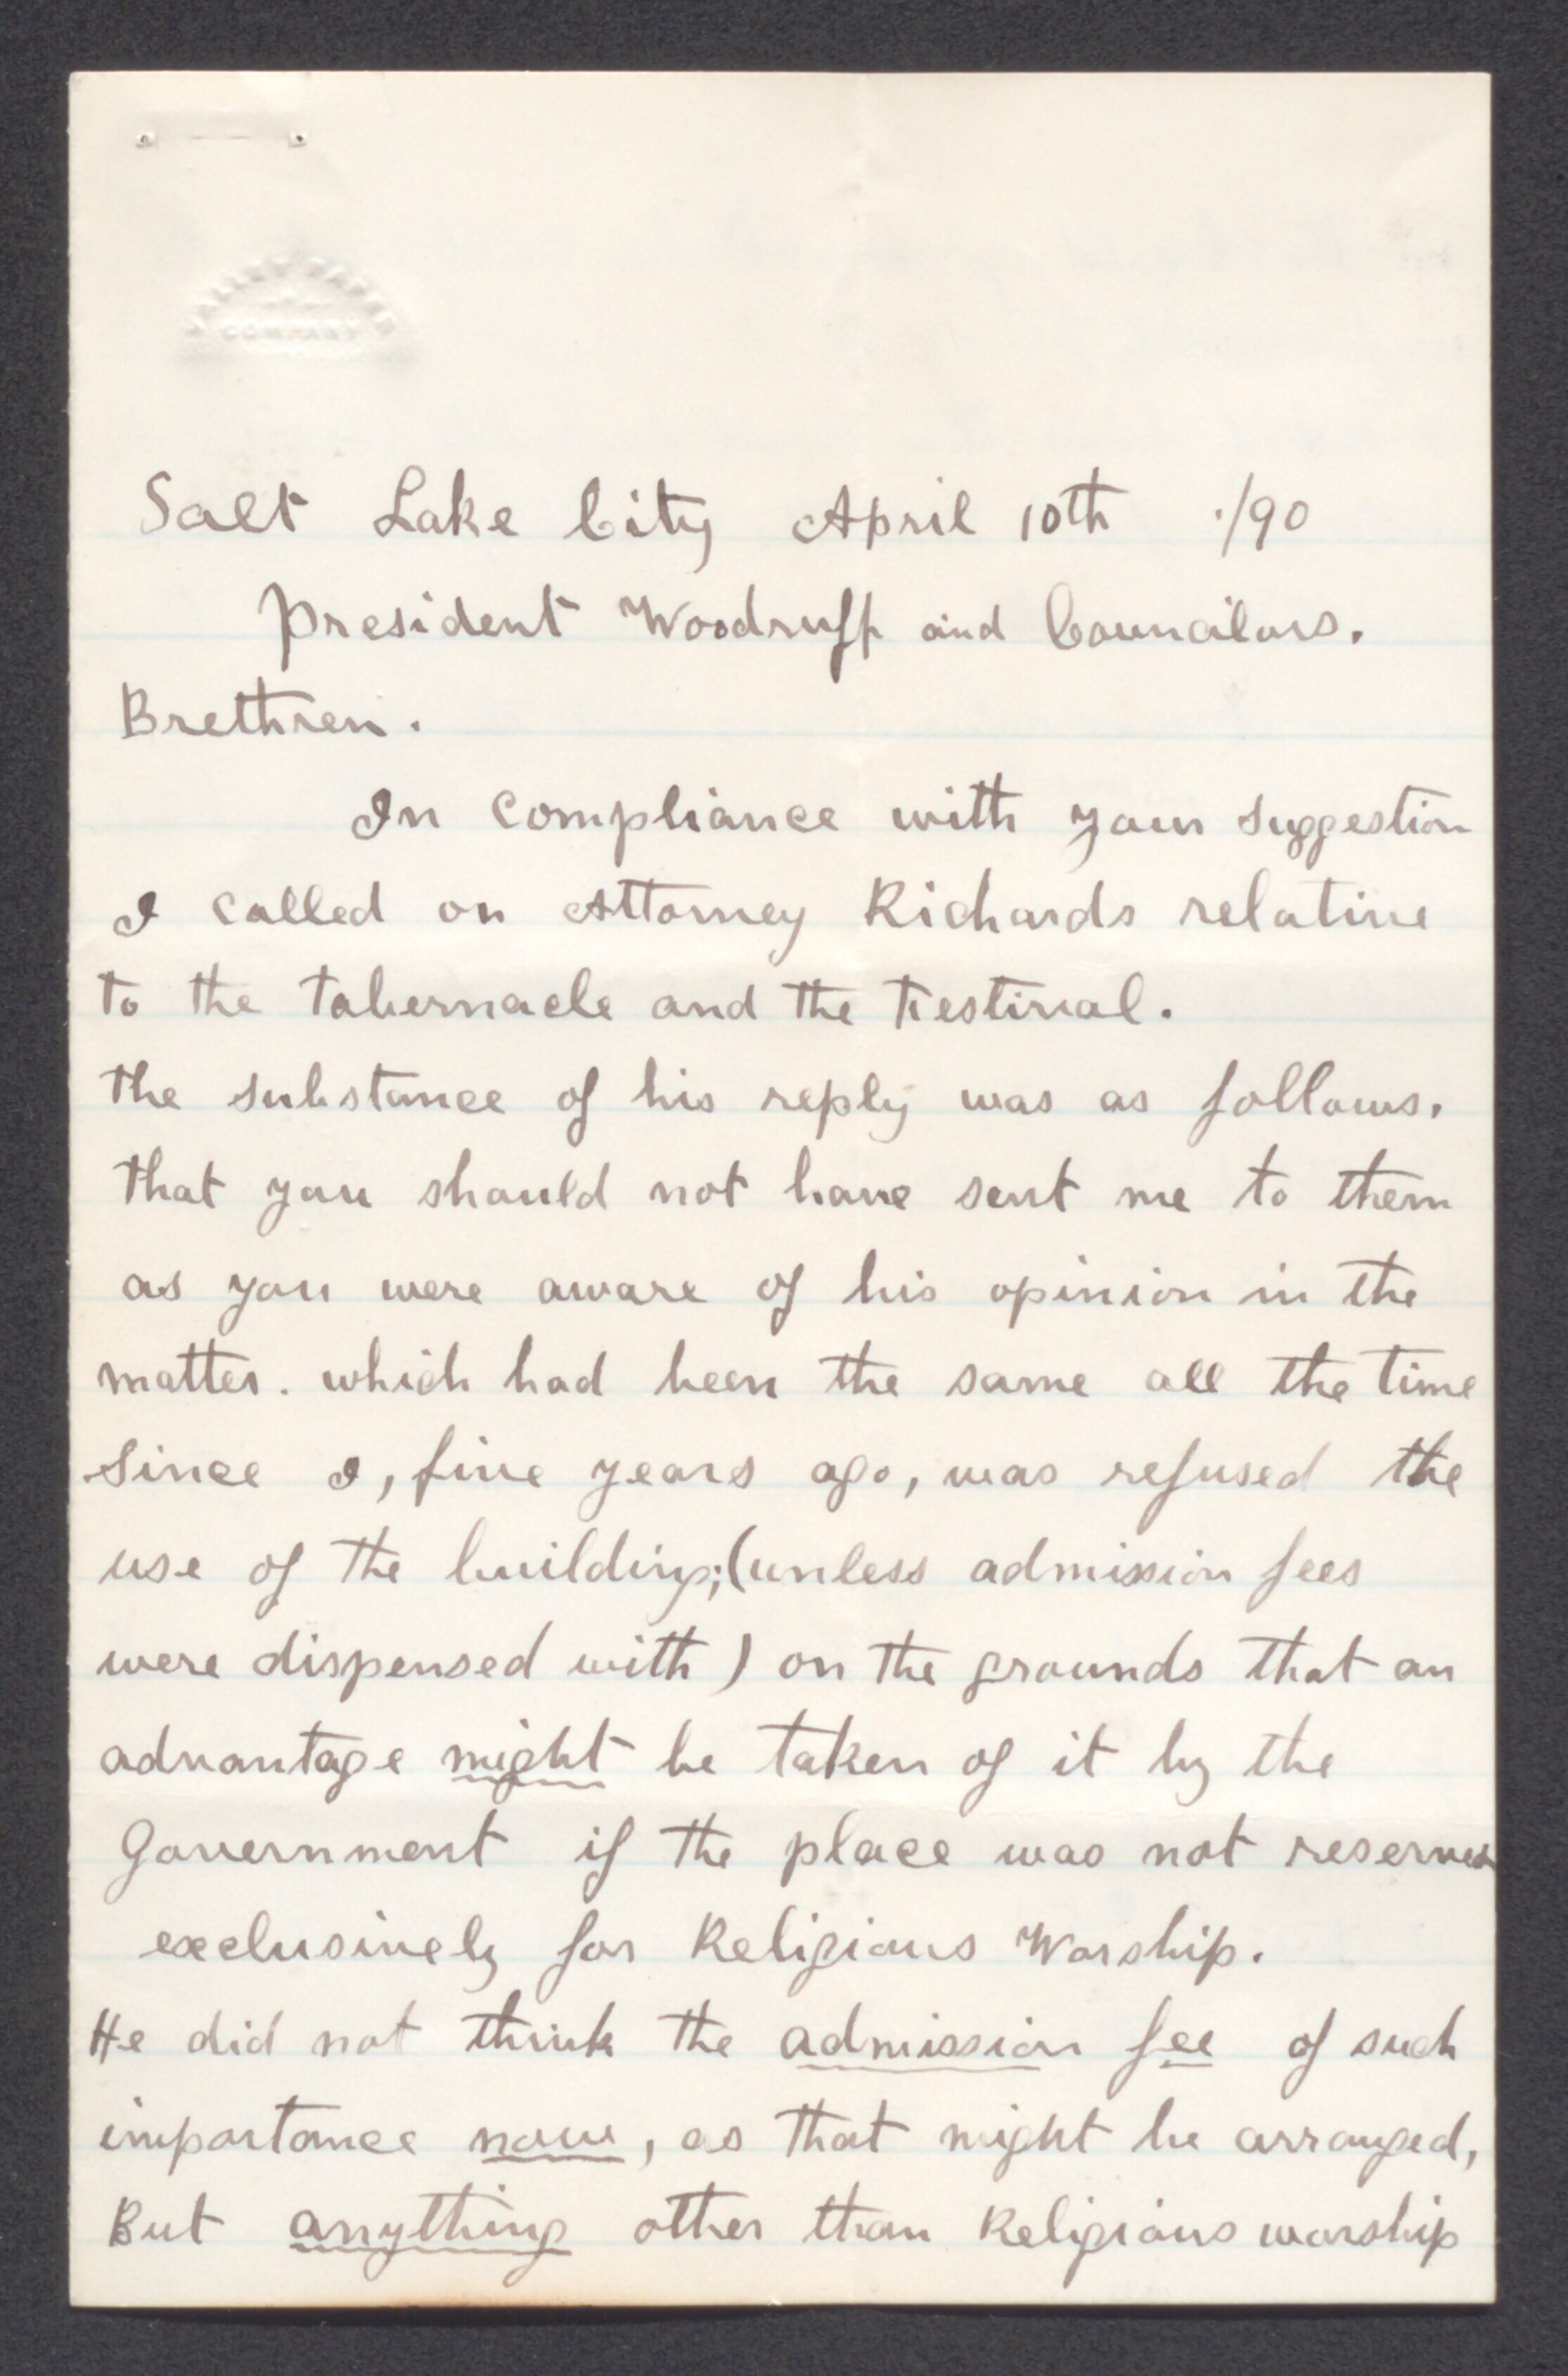 COMPANY
Salt Lake City April 10th ./90
President Woodruff and Councilors.
Brethren.
In compliance with your suggestion
I called on Attorney Richards relative
to the tabernacle and the Festival.
the substance of his reply was as follows.
that you should not have sent me to them
as you were aware of his opinion in the
matter. which had been the same all the time
since I, five years ago, was refused the
use of the building; (unless admission fees
were dispensed with) on the grounds that an
advantage might be taken of it by the
Government if the place was not reserved
exclusively for Religious Worship.
He did not think the admission fee of such
importance now, as that might be arranged,
But anything other than Religious worship